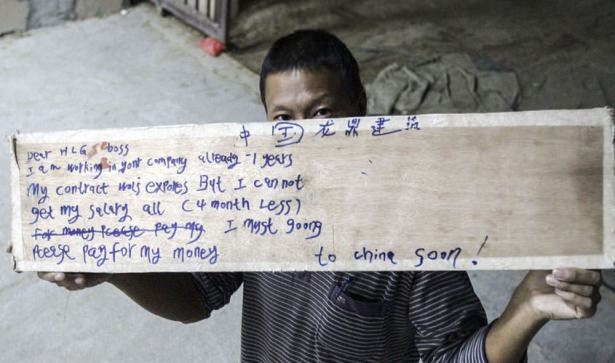 中国龙鼎建筑
Dear HLG boss
I am working in yont company already -1 years
My contract wols expores But I can not
get my salary all (4 month Less)
for money Pcease pay my I myst goong
Pcese pay for my money to china soon!